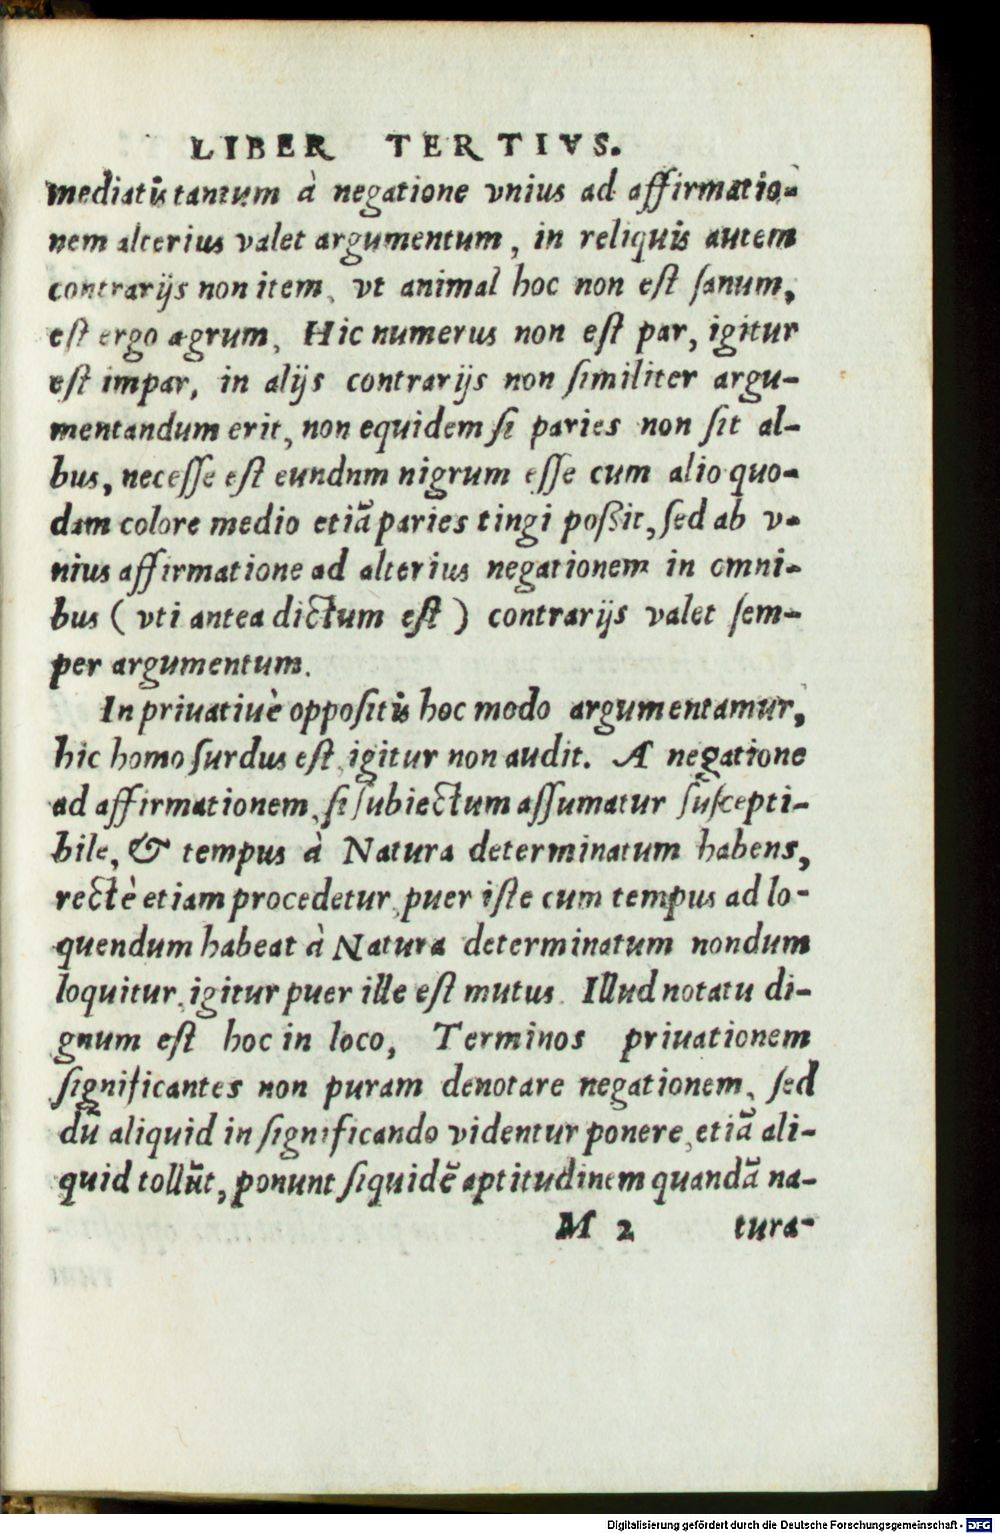 LIBER TERTIVS.
mediatis tantum à negatione vnius ad affirmatio-
nem alterius valet argumentum, in reliquis autem
contrarijs non item, vt animal hoc non eſt ſanum,
eſt ergo agrum, Hic numerus non eſt par, igitur
eſt impar, in alijs contrarijs non ſimiliter argu-
mentandum erit, non equidem ſi paries non ſit al-
bus, neceſſe eſt eundnm nigrum eſſe cum alio quo-
dam colore medio etiã paries tingi poßit, ſed ab v-
nius affirmatione ad alterius negationem in omni-
bus (vti antea dictum eſt) contrarijs valet ſem-
per argumentum.
In priuatiuè oppoſitis hoc modo argumentamur,
hic homo ſurdus eſt, igitur non audit. A negatione
ad affirmationem, ſi ſubiectum aſſumatur ſuſcepti-
bile, & tempus à Natura determinatum habens,
rectè etiam procedetur, puer iſte cum tempus ad lo-
quendum habeat à Natura determinatum nondum
loquitur, igitur puer ille eſt mutus. Illud notatu di-
gnum eſt hoc in loco, Terminos priuationem
ſignificantes non puram denotare negationem, ſed
dũ aliquid in ſignificando videntur ponere, etiã ali-
quid tollũt, ponunt ſiquidẽ aptitudinem quandã na-
M 2 tura-
Digitalisierung gefördert durch die Deutsche Forschungsgemeinschaft - DFG